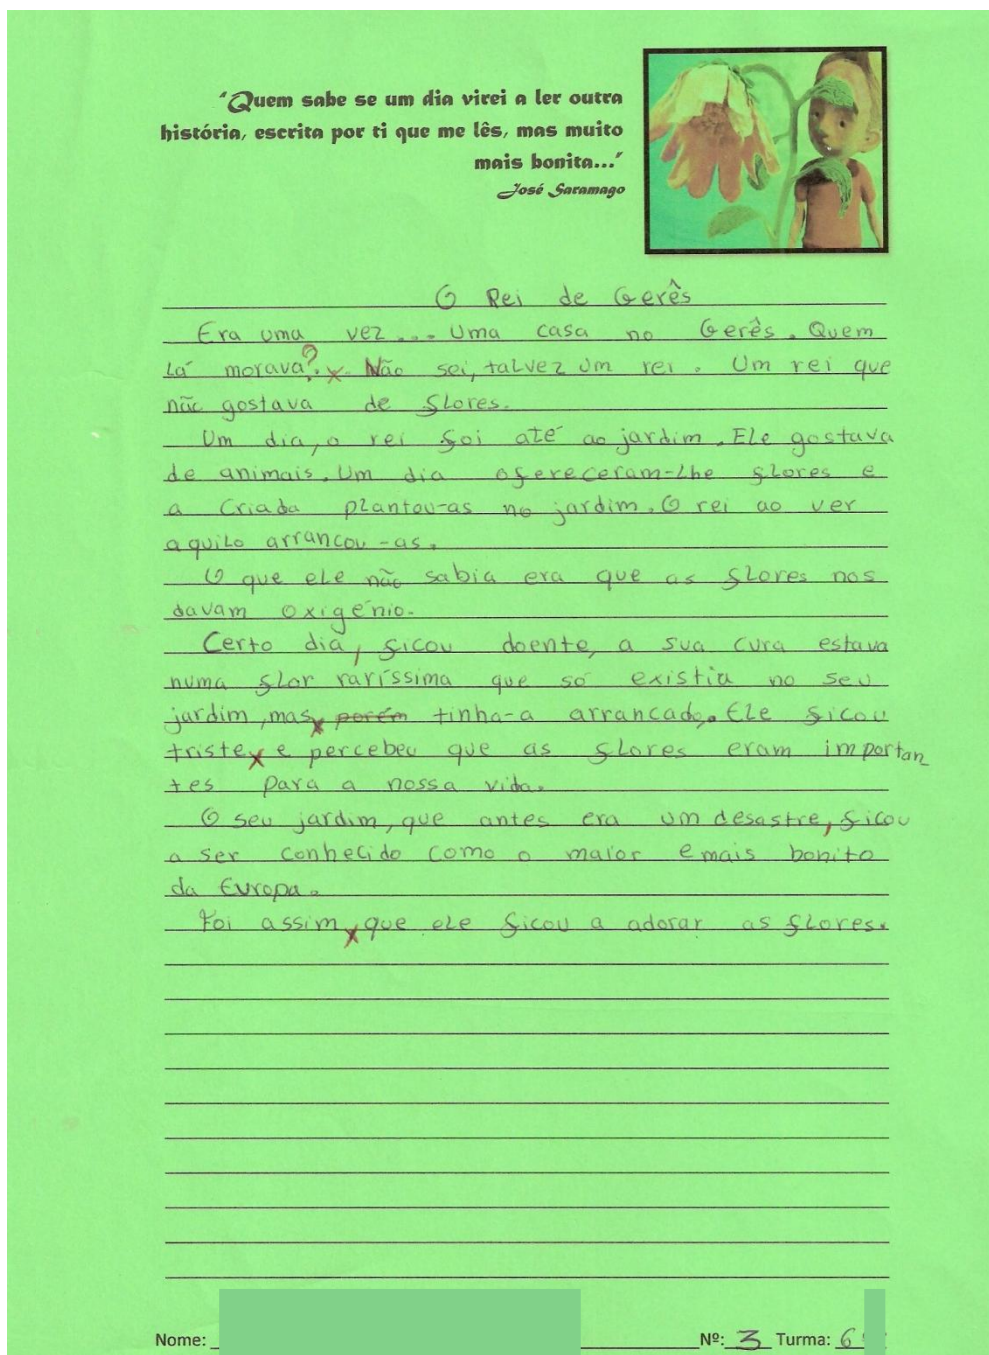 "Quem sabe se um dia virei a ler outra
história, escrita por ti que me lês, mas muito
mais bonita..."
José Saramago
O Rei de Gerês
Era uma vez... Uma casa no Gerês. Quem
lá morava? Não sei, talvez um rei. Um rei que
não gostava de flores.
Um dia, o rei foi até ao jardim. Ele gostava
de animais. Um dia ofereceram-lhe flores e
a criada plantou-as no jardim. O rei ao ver
aquilo arrancou-as.
O que ele não sabia era que as flores nos
davam oxigénio.
Certo dia, ficou doente, a sua cura estava
numa flor raríssima que só existia no seu
jardim, mas porém tinha-a arrancado. Ele ficou
triste e percebeu que as flores eram importan_
tes para a nossa vida.
O seu jardim, que antes era um desastre, ficou
a ser conhecido como o maior e mais bonito
da Europa.
Foi assim que ele ficou a adorar as flores.
Nome: Nº: 3 Turma: 6